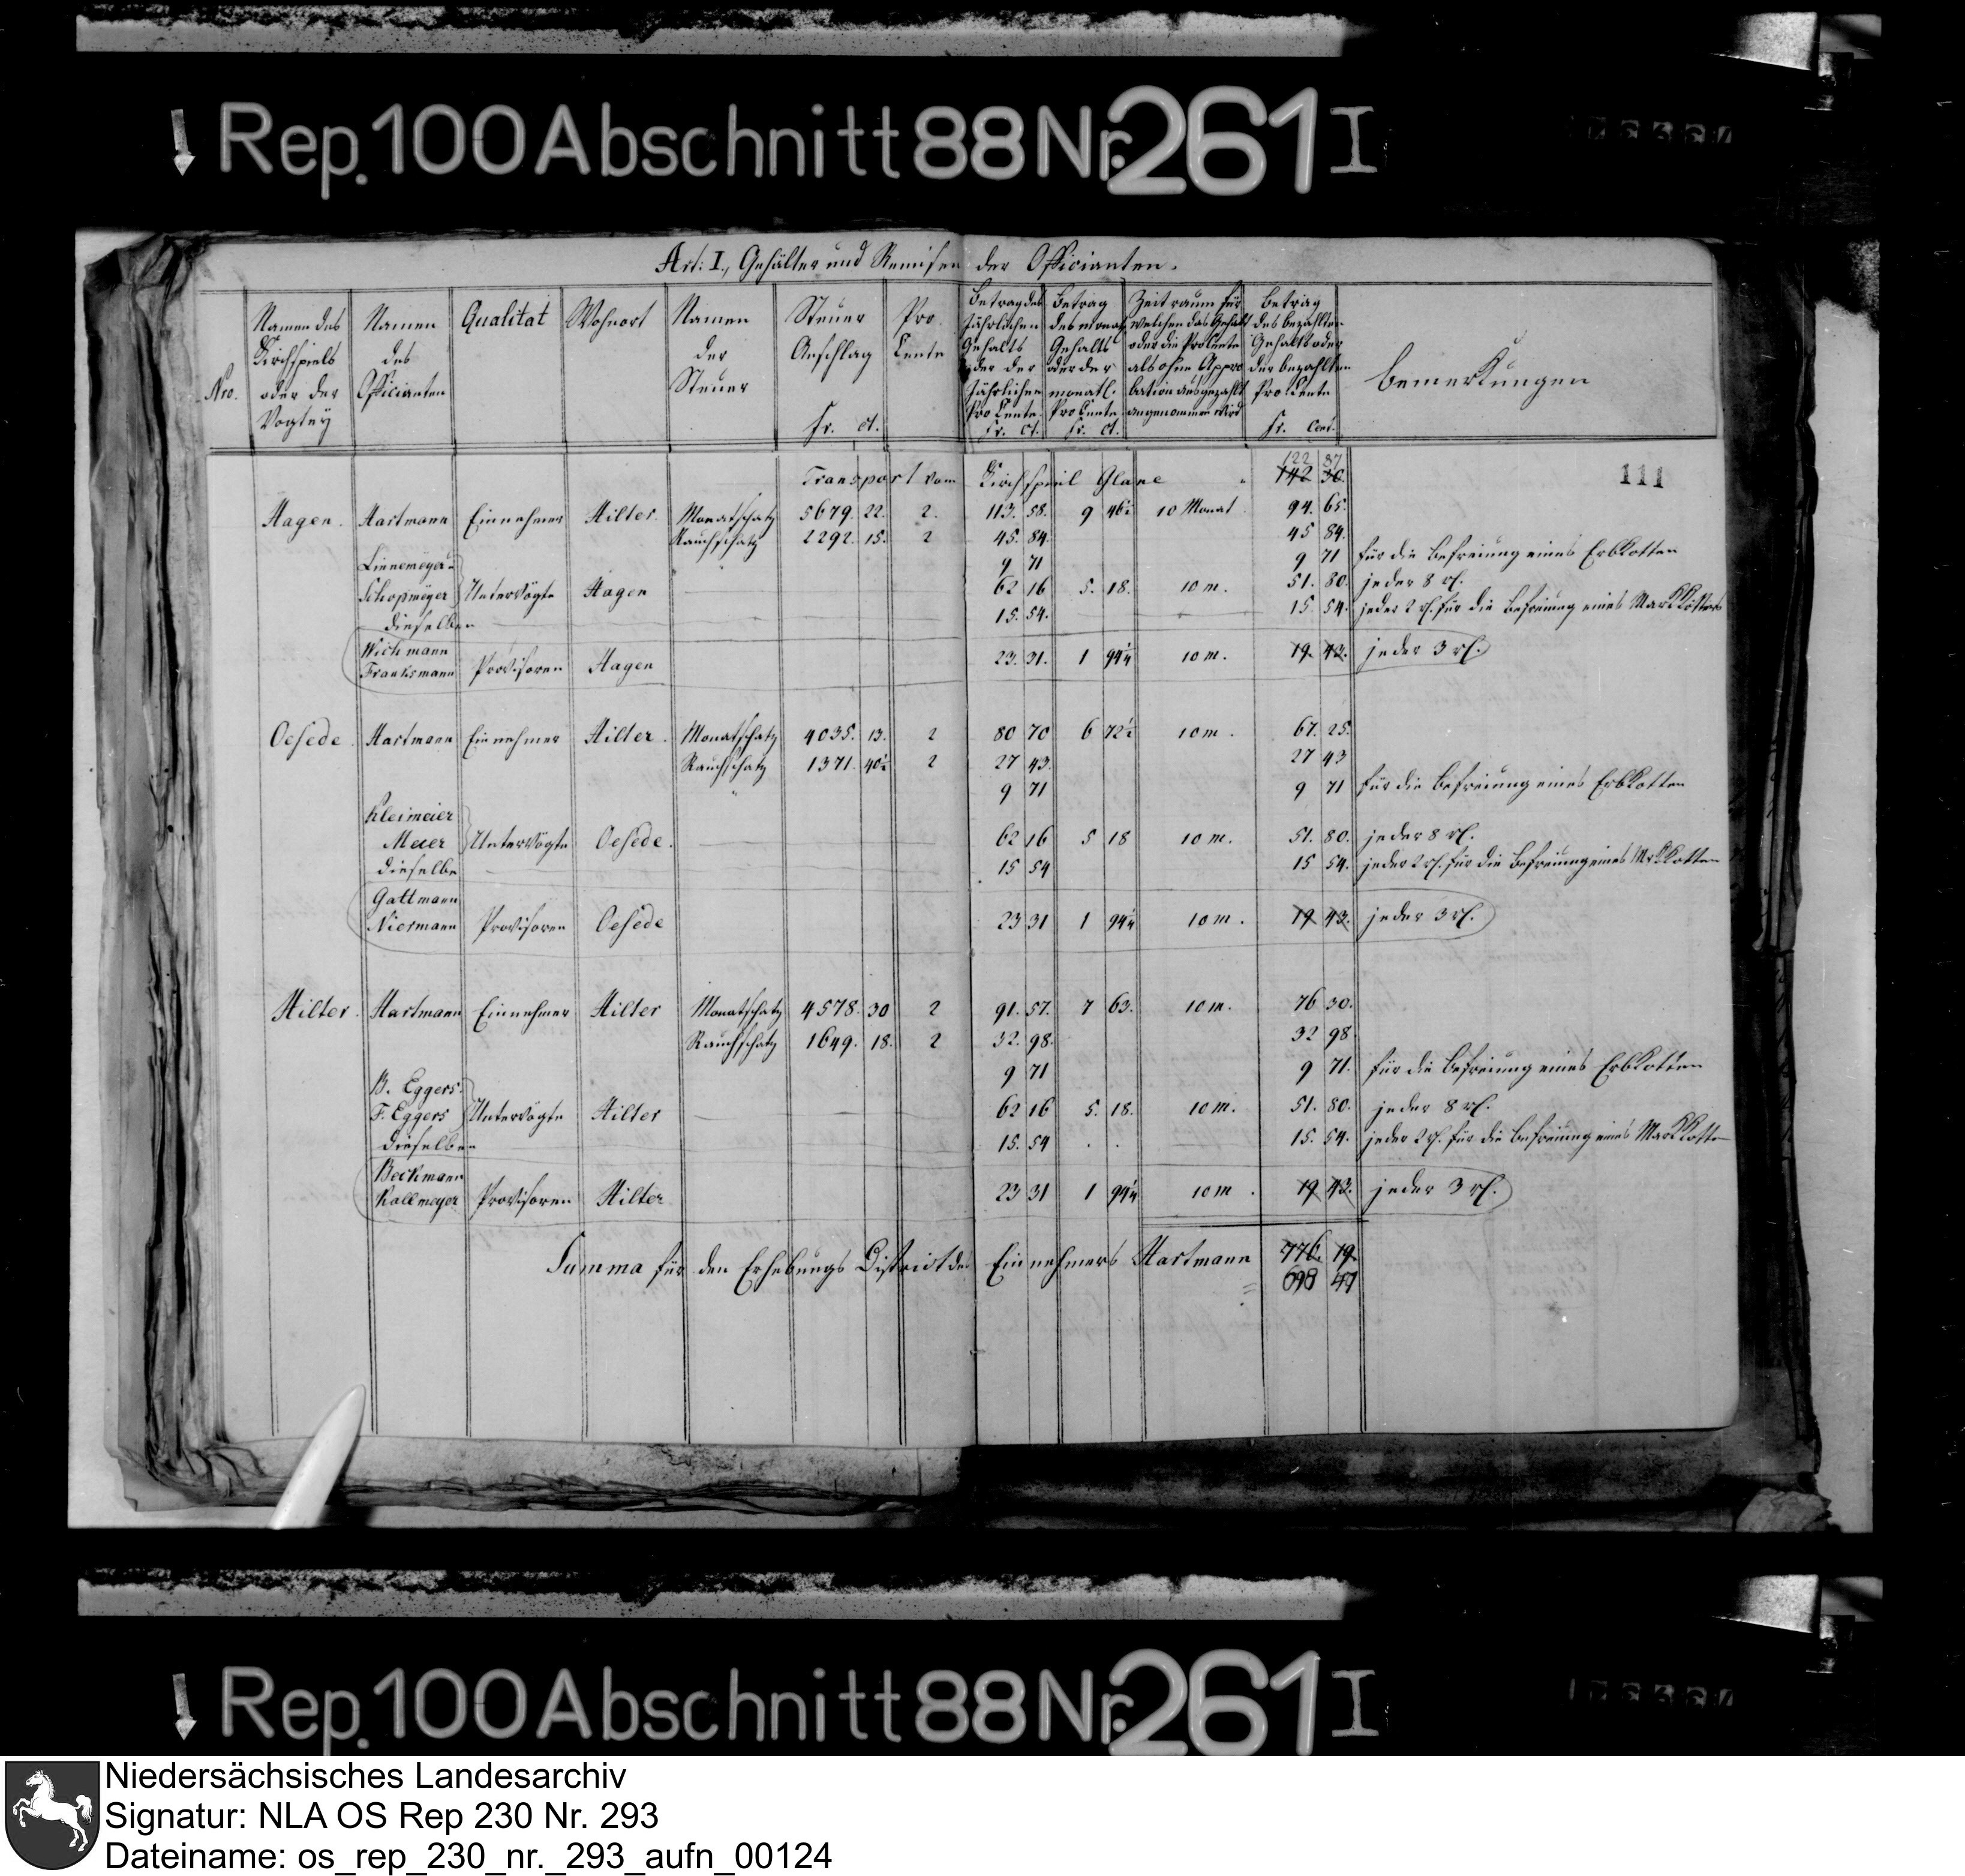 Rep. 100 Abschnitt 88 Nr. 261 I
Art: I., Gehälter und Remisen der Officianten.
Nro.
Namen des Kirchspiels oder der Vogtey
Namen des Officianten
Qualitat
Wohnort
Namen der Steuer
Steuer Anschlag fr. ct.
Pro Cente
Betrag des jährlichen Gehalts oder der jährlichen Pro Cente fr. ct.
Betrag des monatl. Gehalts oder der monatl. Pro Cente fr. ct.
Zeitraum für welchen das Gehalt oder die Pro Cente als ohne Appro bation ausgezahlt angenommen wird
Betrag des bezahlten Gehalts oder der bezahlten Pro Cente fr. Cent.
Bemerkungen
122 87
Transport vom Kirchspiel Glane 142 30.
111
Hagen. Hartmann Einnehmer Hilter. Monatschatz 5679. 22. 2. 113. 58. 9 46½ 10 Monat 94. 65.
Rauchschatz 2292. 15. 2 45. 84. 45 84.
9 71 9 71 für die Befreiung eines Erbkotten
Linnemeyer u
Schopmeyer Untervögte Hagen 62 16 5. 18. 10 m. 51. 80. jeder 8 rl.
dieselben 15. 54. 15. 54. jeder 2 rl. für die Befreiung eines Markkotten
Wichmann
Franksmann Provisoren Hagen 23. 31. 1 94¼ 10 m. 19. 43. jeder 3 rl.
Oesede. Hartmann Einnehmer Hilter. Monatschatz 4035. 13. 2 80 70 6 72½ 10 m. 67. 25.
Rauchschatz 1371. 40½ 2 27 43. 27 43
9 71 9 71 für die Befreiung eines Erbkotten
Kleimeier
Meier Untervögte Oesede. 62 16 5 18 10 m. 51. 80. jeder 8 rl.
dieselbe 15 54 15 54. jeder 2 rl. für die Befreiung eines Mrkkotten
Gattmann
Niermann Provisoren Oesede 23 31 1 94¼ 10 m. 19 43. jeder 3 rl.
Hilter. Hartmann Einnehmer Hilter Monatschatz 4578. 30 2 91. 57. 7 63. 10 m. 76 30.
Rauchschatz 1649. 18. 2 32. 98. 32 98.
9 71 9 71. für die Befreiung eines Erbkotten
B. Eggers.
F. Eggers Untervögte Hilter 62 16 5. 18. 10 m. 51. 80. jeder 8 rl.
dieselben 15. 54 15. 54. jeder 2 rl. für die Befreiung eines Markkotten
Beckmann
Kallmeyer Provisoren Hilter 23 31 1 94¼ 10 m. 19 43. jeder 3 rl.
Summa für den Erhebungs District des Einnehmers Hartmann 776. 19.
698 47
Rep. 100 Abschnitt 88 Nr. 261 I
Niedersächsisches Landesarchiv
Signatur: NLA OS Rep 230 Nr. 293
Dateiname: os_rep_230_nr._293_aufn_00124